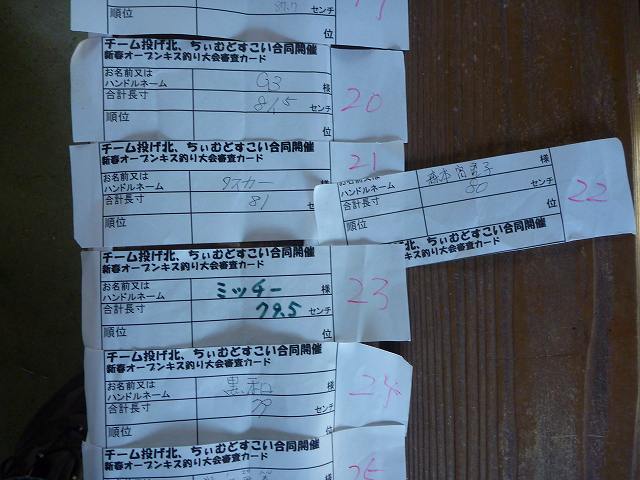 順位
センチ
位
チーム投げ北、ちぃむどすこい合同開催
新春オープンキス釣り大会審査カード
お名前又は
ハンドルネーム
G3
様
合計長寸
81.5
センチ
順位
位
20
チーム投げ北、ちぃむどすこい合同開催
新春オープンキス釣り大会審査カード
お名前又は
ハンドルネーム
タスカー
合計長寸
81
順位
21
お名前又は
ハンドルネーム
様
合計長寸
80
センチ
順位
位
22
ちぃむどすこい合同開催
釣り大会審査カード
チーム投げ北、ちぃむどすこい合同開催
新春オープンキス釣り大会審査カード
お名前又は
ハンドルネーム
ミッチー
様
合計長寸
79.5
センチ
順位
位
23
チーム投げ北、ちぃむどすこい合同開催
新春オープンキス釣り大会審査カード
お名前又は
ハンドルネーム
黒和
様
合計長寸
79
センチ
順位
位
24
チーム投げ北、ちぃむどすこい合同開催
新春オープンキス釣り大会審査カード
お名前又は
25